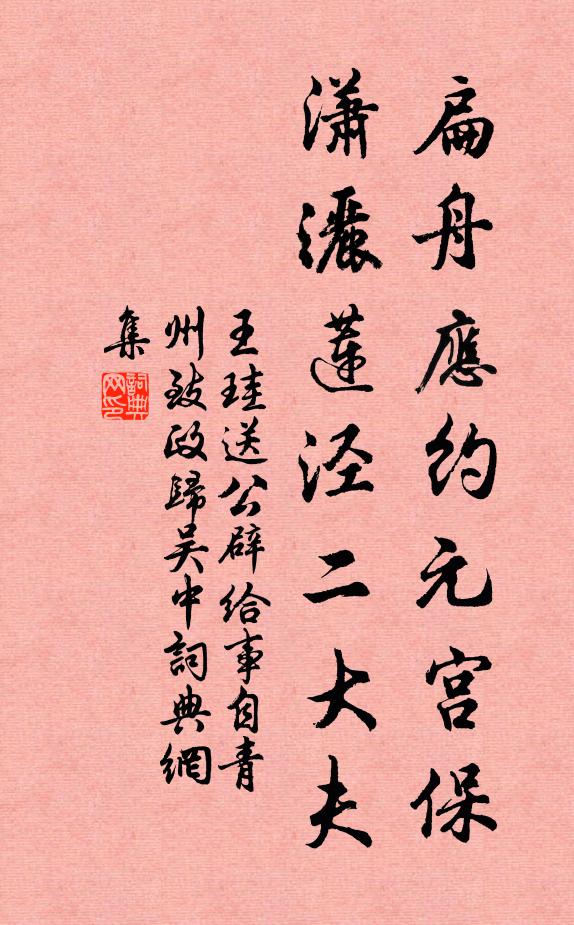 扁舟應約元宮保
瀟灑蓮涇二大夫
王珪送公辟給事自青
州致政歸吴中詞典網
集
詞典網印